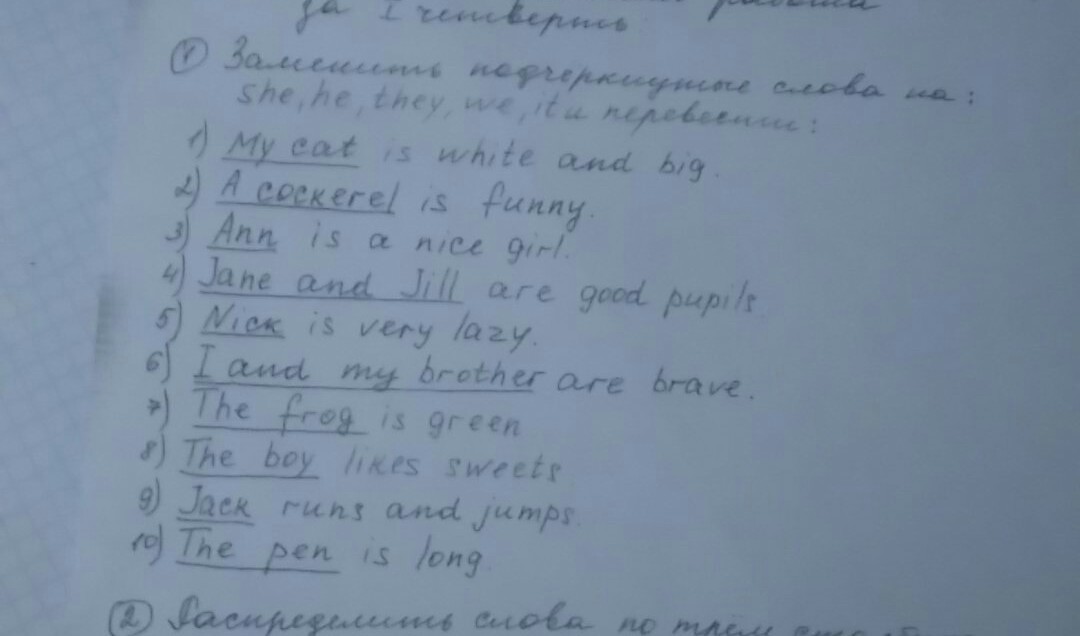 за I четверть
① Заменить подчеркнутые слова на:
she, he, they, we, it и перевести:
1) My cat is white and big.
2) A cockerel is funny.
3) Ann is a nice girl.
4) Jane and Jill are good pupils
5) Nick is very lazy.
6) I and my brother are brave.
7) The frog is green
8) The boy likes sweets
9) Jack runs and jumps.
10) The pen is long
② Распределить слова по трем